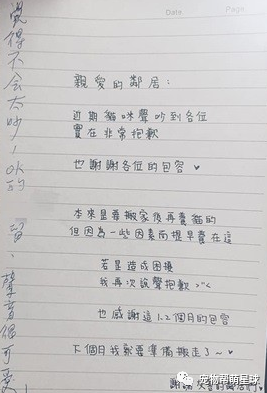 Date
Page
親愛的鄰居：
近期貓咪聲吵到各位
實在非常抱歉
也謝謝各位的包容♥
本來是要搬家後再養貓的
但因為一些因素而提早養在這
若是造成困擾
我再次說聲抱歉 >"<
也感謝這1.2個月的包容
下個月我就要準備搬走了～♥
謝謝
覺得不会太吵，ok的
留，聲音很可愛
宠物帮萌星球